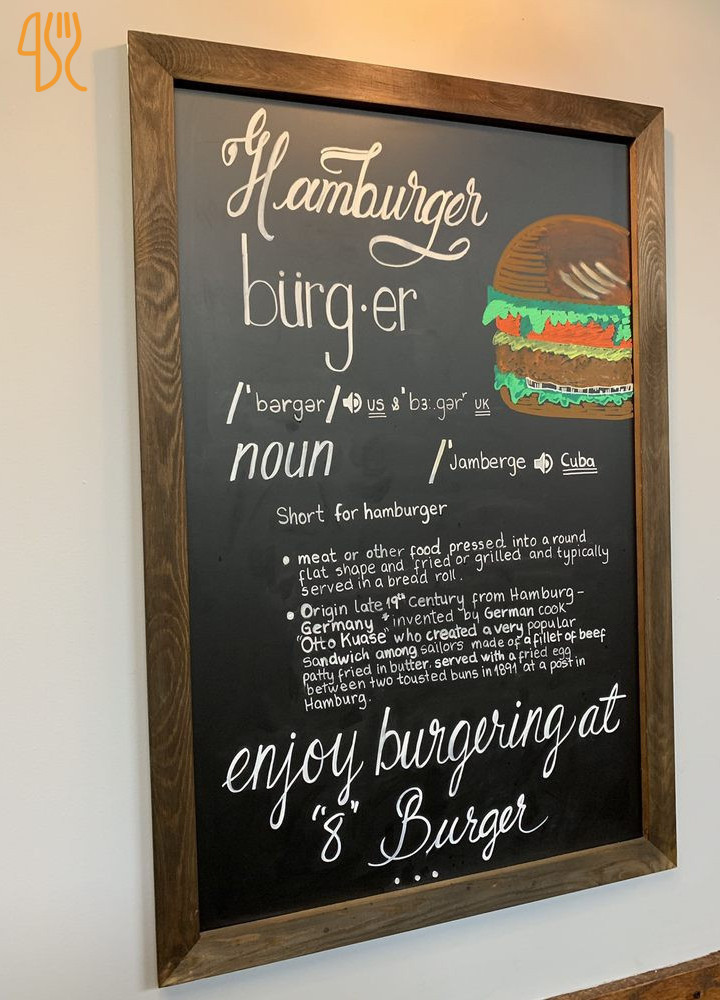 Hamburger
bürg·er
/'bərgər/ US & 'bɜː.gər' UK
noun /'Jamberge Cuba
Short for hamburger
• meat or other food pressed into a round
flat shape and fried or grilled and typically
served in a bread roll.
• Origin late 19th Century from Hamburg-
Germany * invented by German cook
"Otto Kuase" who created a very popular
sandwich among sailors made of a fillet of beef
patty fried in butter, served with a fried egg
between two tousted buns in 1891 "at a post in
Hamburg.
enjoy burgering at
"8" Burger
...